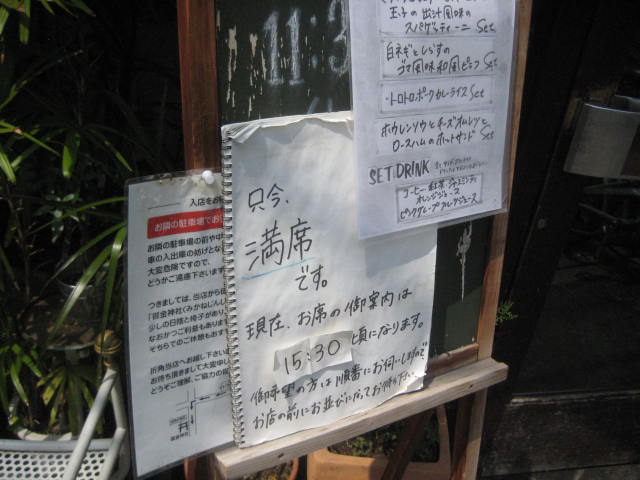 11:3
玉子の出汁風味の
スパゲッティーニ Set
白ネギとしらすの
ゴマ風味和風ピラフ Set
・トロトロポークカレーライス Set
ホウレンソウとチーズオムレツと
ロースハムのホットサンド Set
SET DRINK
コーヒー・紅茶・ジャスミンティ
オレンジジュース
ピンクグレープフルーツジュース
只今、
満席
です。
現在、お席の御案内は
15:30 頃になります。
御希望の方は順番にお伺いしますので
お店の前にお並びになってお待ち下さい。
入店をお
お隣の駐車場でお
お隣の駐車場の前や中
車の入出庫の妨げとな
大変危険ですので、
どうかご遠慮下さいます
つきましては、当店から徒
「御金神社（みかねじんじ
少しの日陰と椅子があり
なおかつご利益もあります
そちらでのご休憩もおす
折角当店へお越し下さいま
お待ち頂きまして大変申し
どうぞご理解、ご協力の程
御金神社